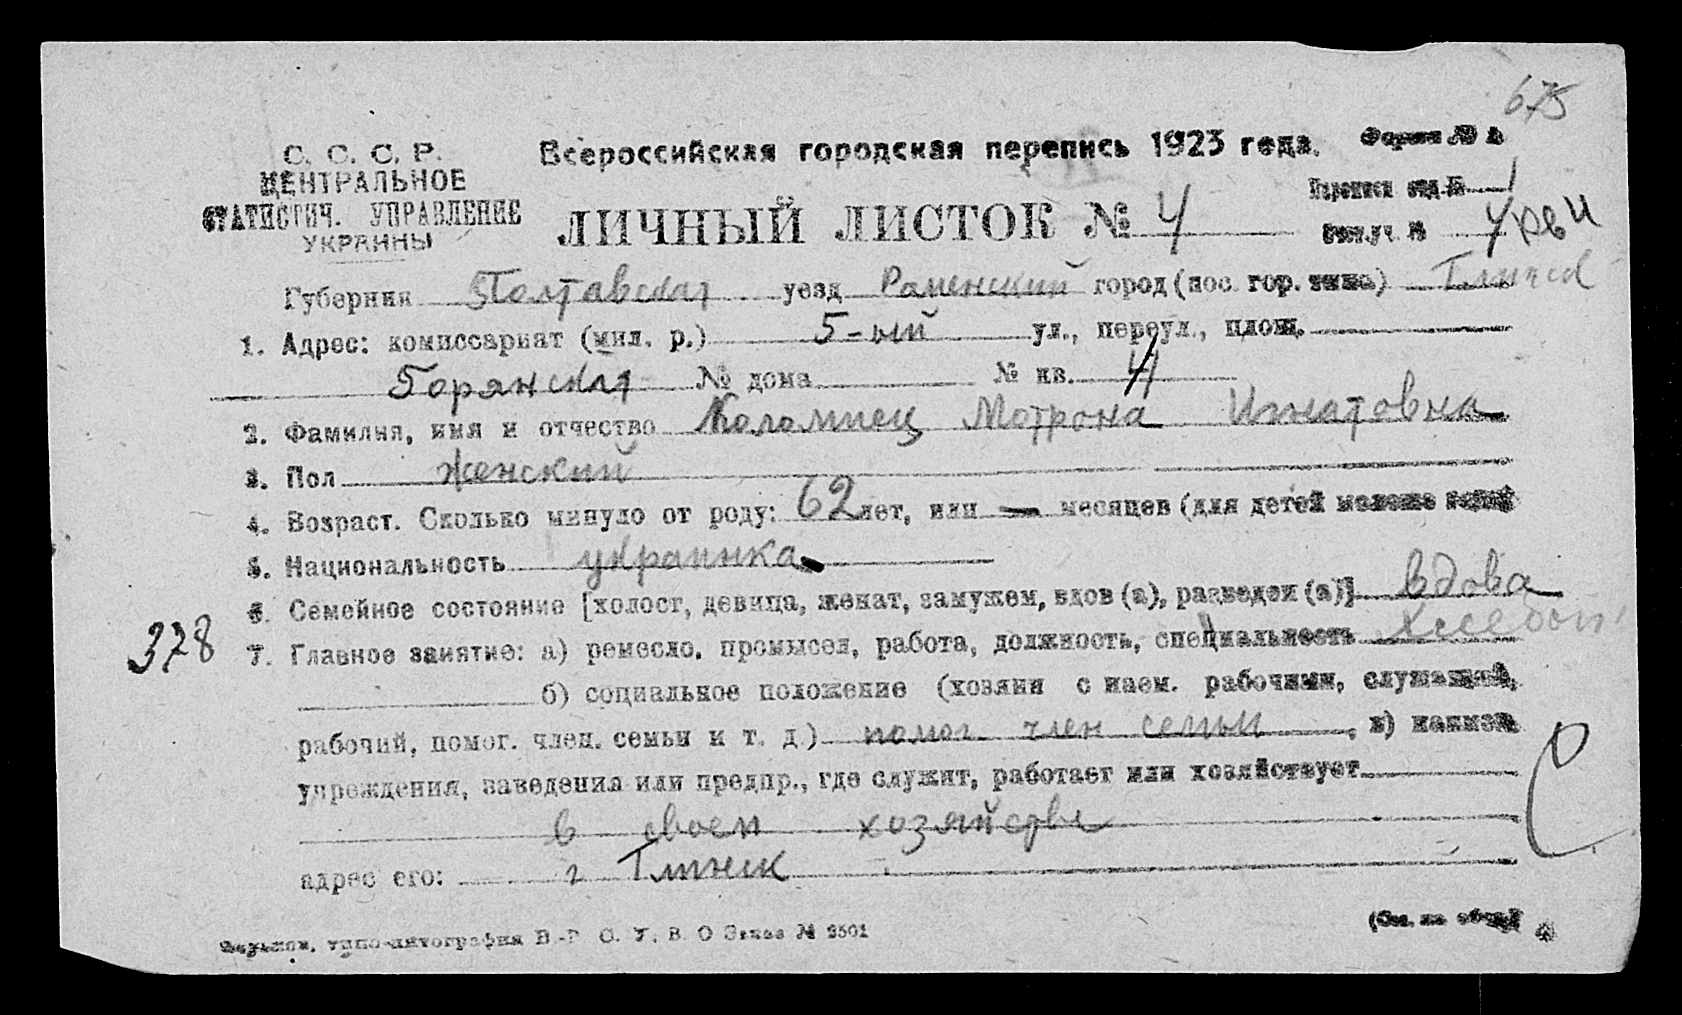 675
С. С. С. Р.
ЦЕНТРАЛЬНОЕ
СТАТИСТИЧ. УПРАВЛЕНИЕ
УКРАИНЫ
Всероссийская городская перепись 1923 года.
Форма № А
ЛИЧНЫЙ ЛИСТОК № 4
Переписн отд. № 1
Счетн.уч. № 4
Губерния Полтавская уезд Роменский город (пос. гор. типа) Глинск
1. Адрес: комиссариат (мил. р.) 5-ый ул., переул., площ.
Горянская № дома № кв. 4
2. Фамилия, имя и отчество Коломиец Мотрона Игнатовна
3. Пол женский
4. Возраст. Сколько минуло от роду: 62 лет, или — месяцев (для детей моложе
5. Национальность украинка
6. Семейное состояние [холост, девица, женат, замужем, вдов (а), разведен (а)] вдова
378
7. Главное занятие: а) ремесло, промысел, работа, должность, специальность хлебоп
б) социальное положение (хозяин с наем. рабочими, служащий,
рабочий, помог. член. семьи и т. д.) помог. член семьи, в) наимен
учреждения, заведения или предпр., где служит, работает или хозяйствует
в своем хозяйстве
адрес его: г Глинск
(См. на обор.)
Харьков, типо-литография В.-Р. С. У. В. О Заказ № 2501